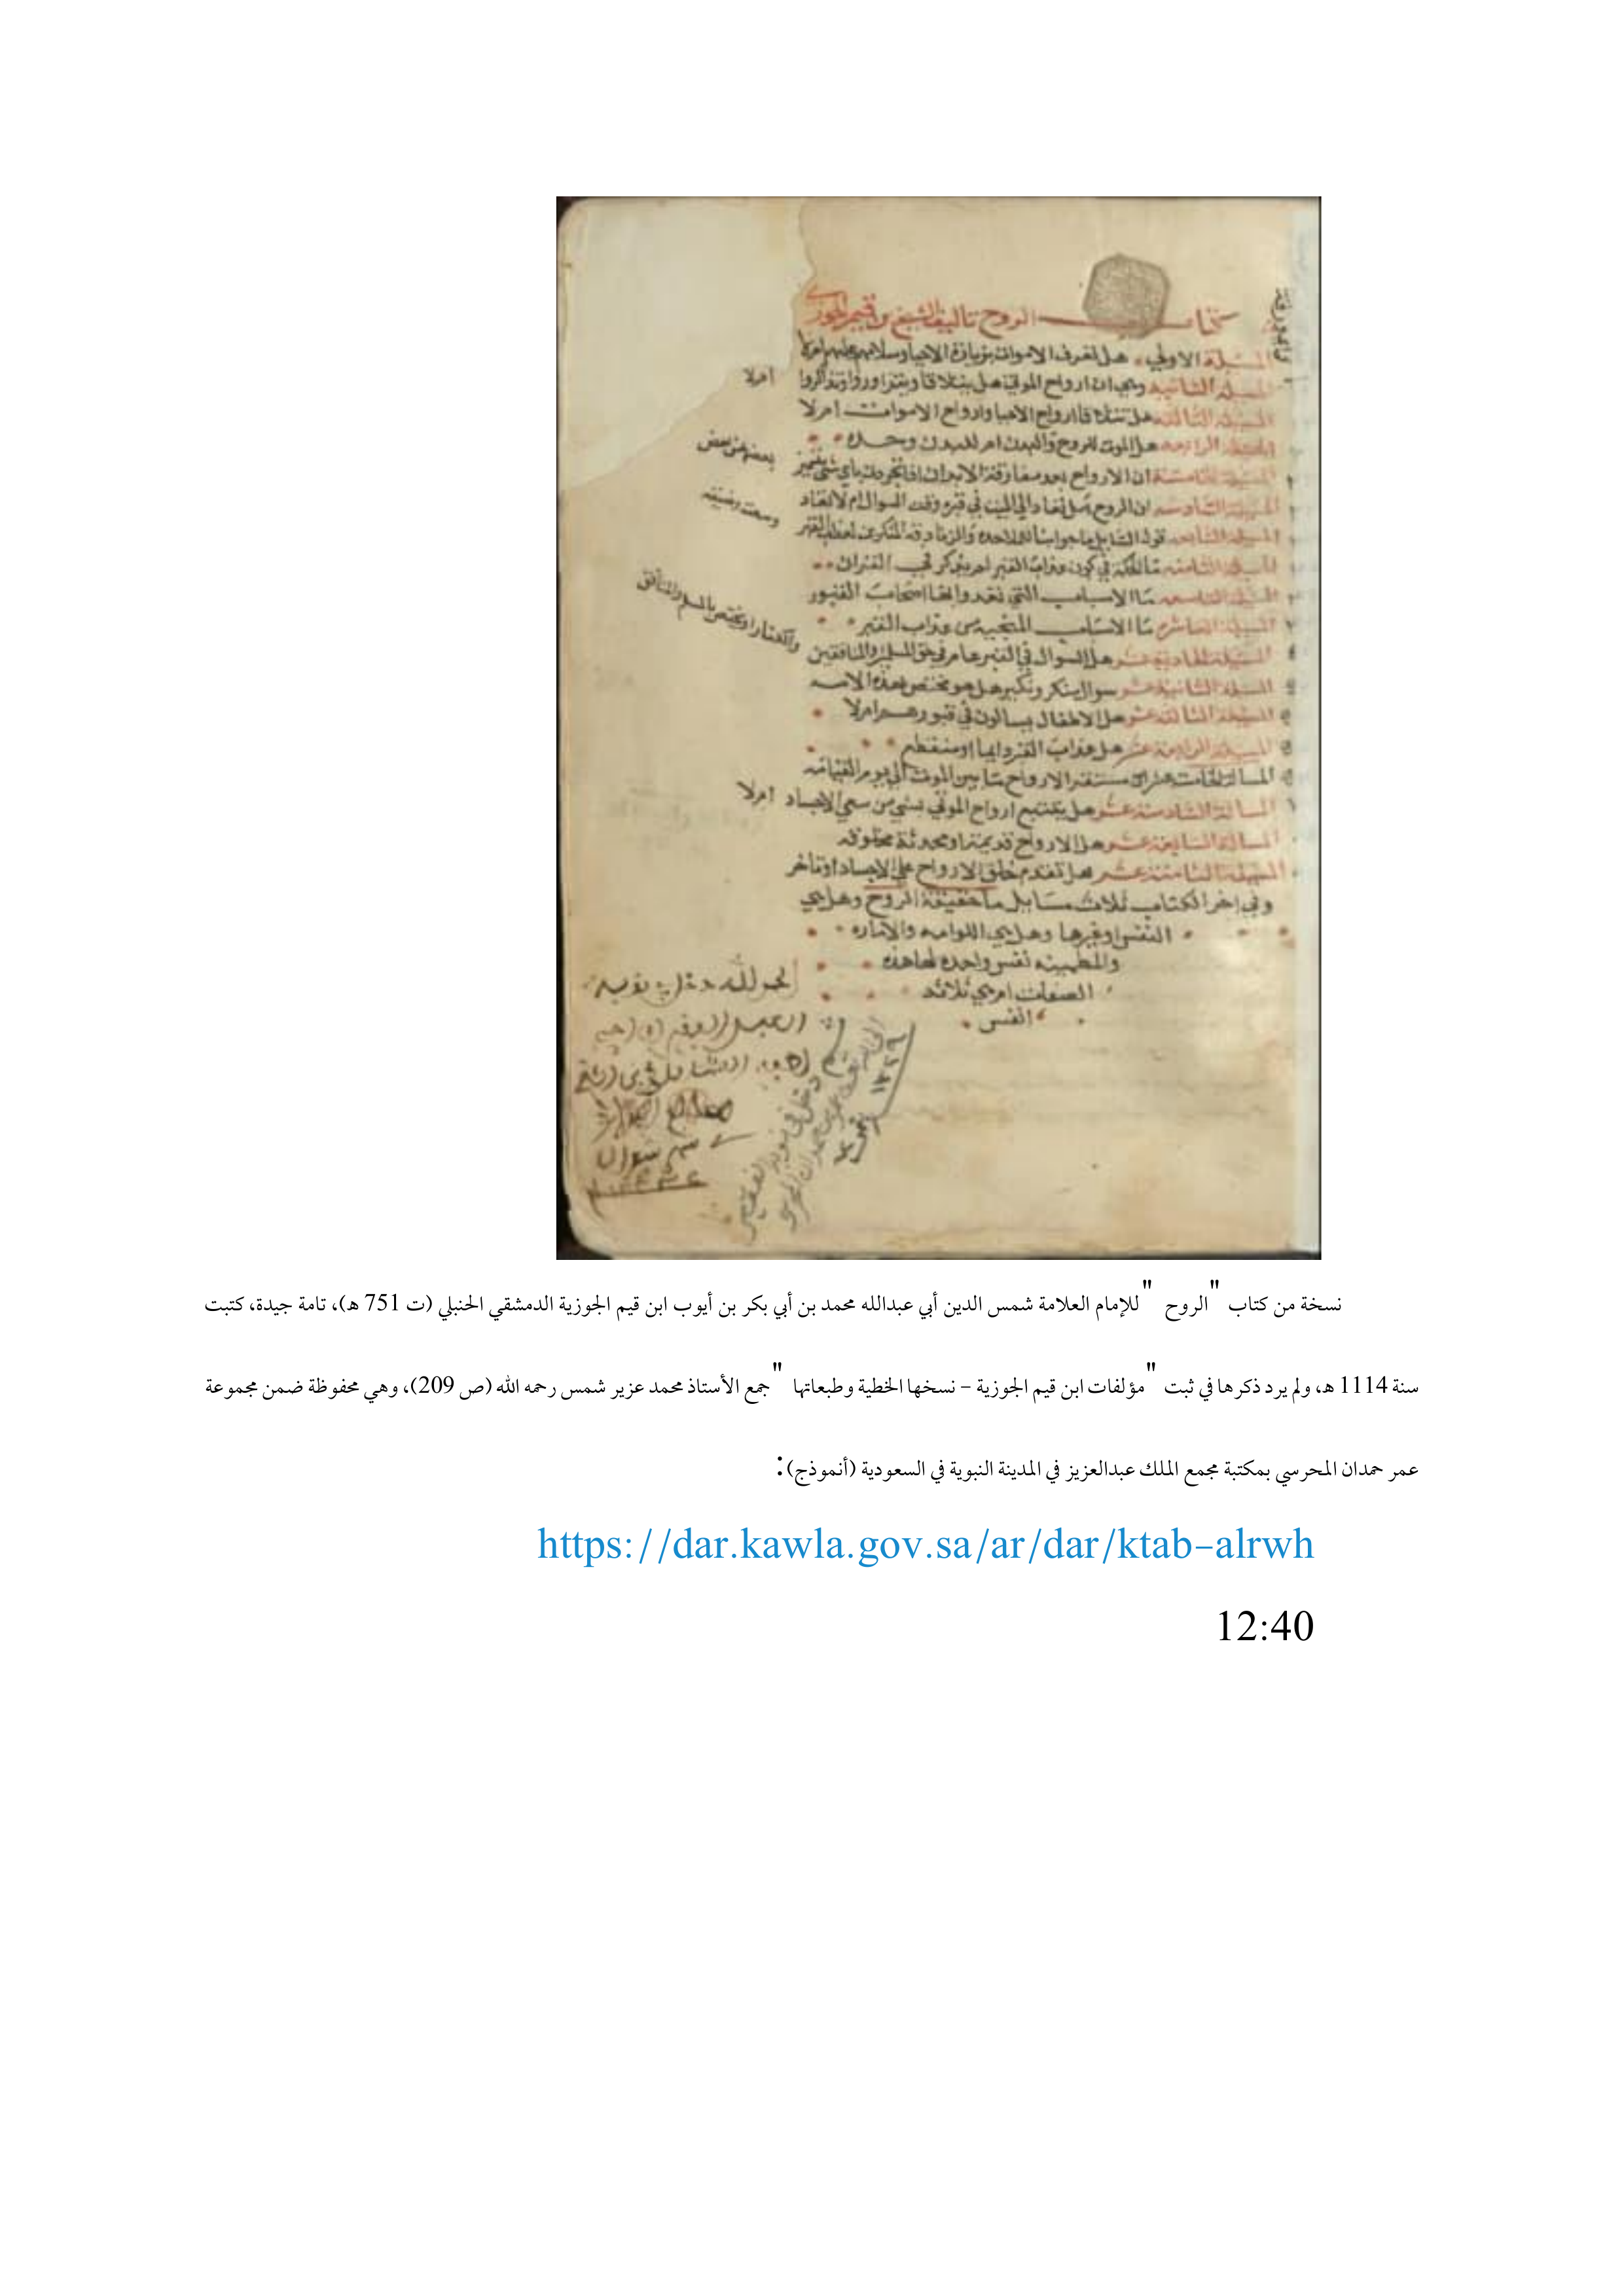 كتاب الروح تاليف الشيخ بن قيم الجوزي
المسيلة الاولي هل تعرف الاموات بزيارة الاحيا وسلامهم عليهم ام لا
المسيلة الثانيه وهي ان ارواح الموتي هل يتلاقا ويتزاوروا ويتذاكروا ام لا
المسيلة الثالثه هل تتلاقا ارواح الاحيا وارواح الاموات ام لا
المسيلة الرابعه هل الموت للروح والبدن ام للبدن وحده
المسيلة الخامسة ان الارواح بعد مفارقة الابدان اذا تجردت باي شي يتميز بعضها من بعض
المسيلة السادسه ان الروح هل تعاد الي الميت في قبره وقت السوال ام لا تعاد
المسيلة السابعه قول السايل ما جوابنا للملاحده والزنادقه المنكرين لعذاب القبر وسعته وضيقه
المسيلة الثامنه ما الحكمة في كون عذاب القبر لم يذكر في القران
المسيلة التاسعه ما الاسباب التي يعذب بها اصحاب القبور
المسيلة العاشره ما الاسباب المنجيه من عذاب القبر
المسيلة الحادية عشر هل السوال في القبر عام في حق المسلمين والمنافقين والكفار او يختص بالمسلم والمنافق
المسيلة الثانية عشر سوال منكر ونكير هل هو مختص بهذه الامه
المسيلة الثالثة عشر هل الاطفال يسالون في قبورهم ام لا
المسيلة الرابعة عشر هل عذاب القبر دايما او منقطع
المسالة الخامسة عشر اين مستقر الارواح ما بين الموت الي يوم القيامه
المسالة السادسة عشر هل ينتفع ارواح الموتي بشي من سعي الاحياء ام لا
المسالة السابعة عشر هل الارواح قديمة او محدثة مخلوقه
المسيلة الثامنة عشر هل تقدم خلق الارواح علي الاجساد او تاخر
وفي اخر الكتاب ثلاث مسايل ما حقيقة الروح وهل هي
النفس او غيرها وهل هي اللوامه والاماره
والمطمينه نفس واحده لها هذه
الصفات ام هي ثلاثه
انفس
الحمد لله دخل في نوبة
دخل في نوبة الفقير
عمر بن حمدان المحرسي
نسخة من كتاب "الروح" للإمام العلامة شمس الدين أبي عبدالله محمد بن أبي بكر بن أيوب ابن قيم الجوزية الدمشقي الحنبلي (ت 751 هـ)، تامة جيدة، كتبت
سنة 1114 هـ، ولم يرد ذكرها في ثبت "مؤلفات ابن قيم الجوزية - نسخها الخطية وطبعاتها" جمع الأستاذ محمد عزير شمس رحمه الله (ص 209)، وهي محفوظة ضمن مجموعة
عمر حمدان المحرسي بمكتبة مجمع الملك عبدالعزيز في المدينة النبوية في السعودية (أنموذج):
https://dar.kawla.gov.sa/ar/dar/ktab-alrwh
12:40